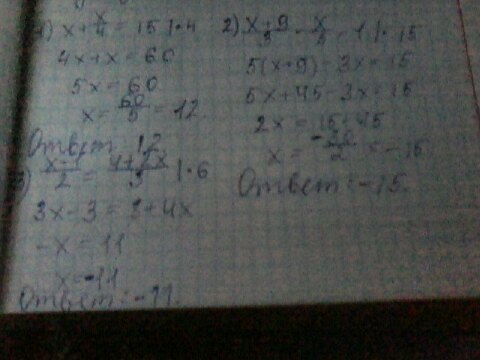 1) x + x/4 = 15 | · 4
4x + x = 60
5x = 60
x = 60/5 = 12.
Ответ 12.
2) x+9/3 - x/5 = 1 | · 15
5(x+9) - 3x = 15
5x + 45 - 3x = 15
2x = 15+45
x = -30/2 x = -15
Ответ: -15.
3) | · 6
3x - 3 = 8 + 4x
-x = 11
x = -11
Ответ: -11.